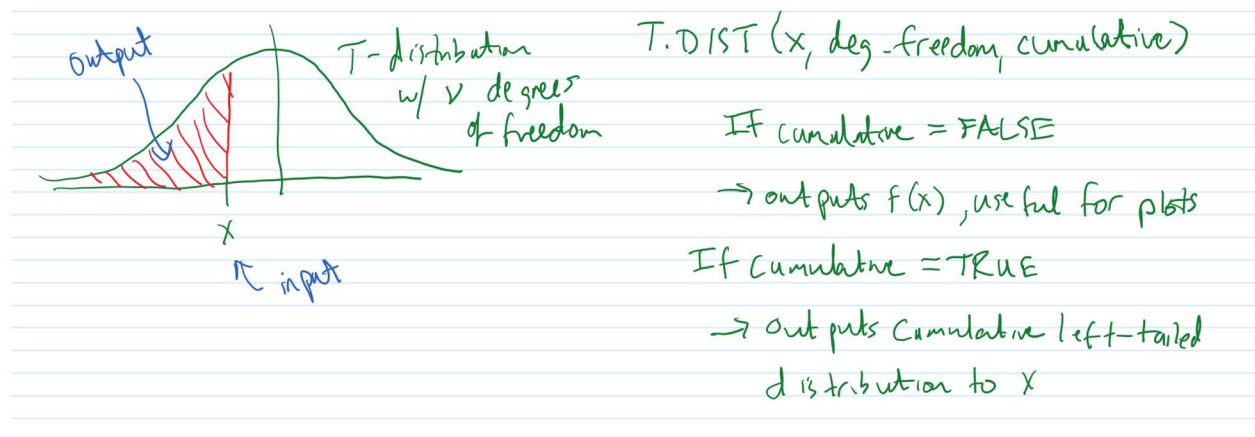 output
T-distribution
w/ ν degrees
of freedom
x
↖ input
T.DIST (x, deg-freedom, cumulative)
If cumulative = FALSE
→ outputs f(x), useful for plots
If cumulative = TRUE
→ outputs cumulative left-tailed
distribution to x